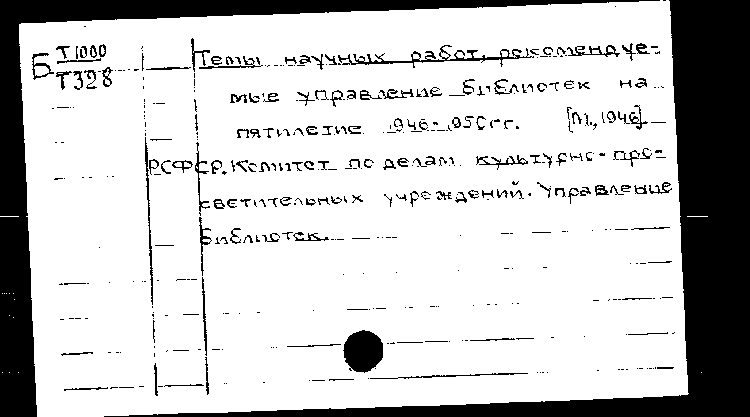 Б Т1000
Т328
Темы научных работ, рекомендуе=
мые управление библиотек на
пятилетие 1946-1950гг. [М., 1946].
РСФСР. Комитет по делам культурно-про=
светительных учреждений. Управление
библиотек.